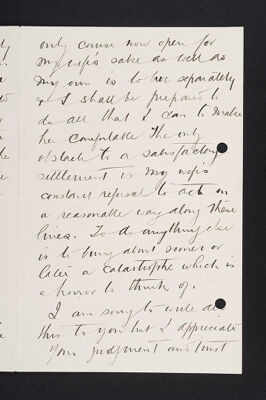 only course now open for
my wife's sake as well as
my own is to live separately
& I shall be prepared to
do all that I can to make
her comfortable The only
obstacle to a satisfactory
settlement is my wife's
constant refusal to act in
a reasonable way along these
lines. To do anything else
is to bring about sooner or
later a catastrophe which is
a horror to think of.
I am sorry to write all
this to you but I appreciate
your judgment and trust